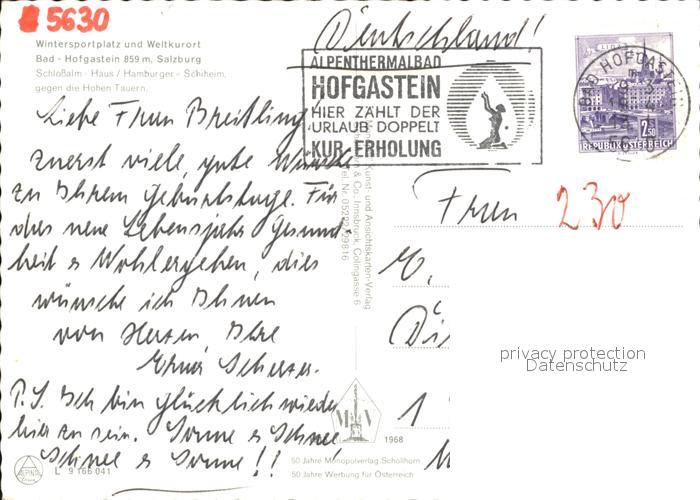 5630
Deutschland!
Wintersportplatz und Weltkurort
Bad - Hofgastein 859 m, Salzburg
Schloßalm - Haus / Hamburger - Schiheim,
gegen die Hohen Tauern.
ALPENTHERMALBAD
HOFGASTEIN
HIER ZÄHLT DER
URLAUB DOPPELT
KUR ERHOLUNG
BAD HOFGASTEIN
LINZ
2.50
REPUBLIK ÖSTERREICH
Liebe Frau Breitling!
zuerst viele, gute Wünsche
zu Ihrem Geburtstage. Für
das neue Lebensjahr Gesund-
heit & Wohlergehen, dies
wünsche ich Ihnen
von Herzen, Ihre
Scherzer.
P.S. Ich bin glücklich wieder
hier zu sein. Sonne & Schnee
Schnee & Sonne!!
Kunst- und Ansichtskarten-Verlag
& Co., Innsbruck, Colingasse 6
Tel. Nr. 05222/29816
Frau
230
M.
Di
1
privacy protection
Datenschutz
M V
1968
L 9166 041
50 Jahre Monopolverlag Schöllhorn
50 Jahre Werbung für Österreich